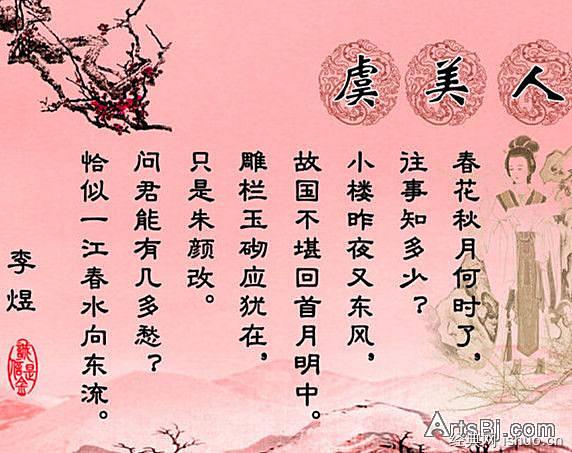 虞美人
春花秋月何时了，
往事知多少？
小楼昨夜又东风，
故国不堪回首月明中。
雕栏玉砌应犹在，
只是朱颜改。
问君能有几多愁？
恰似一江春水向东流。
李煜
诚信是金
ArtsBj.com
经典网 ishuo.cn